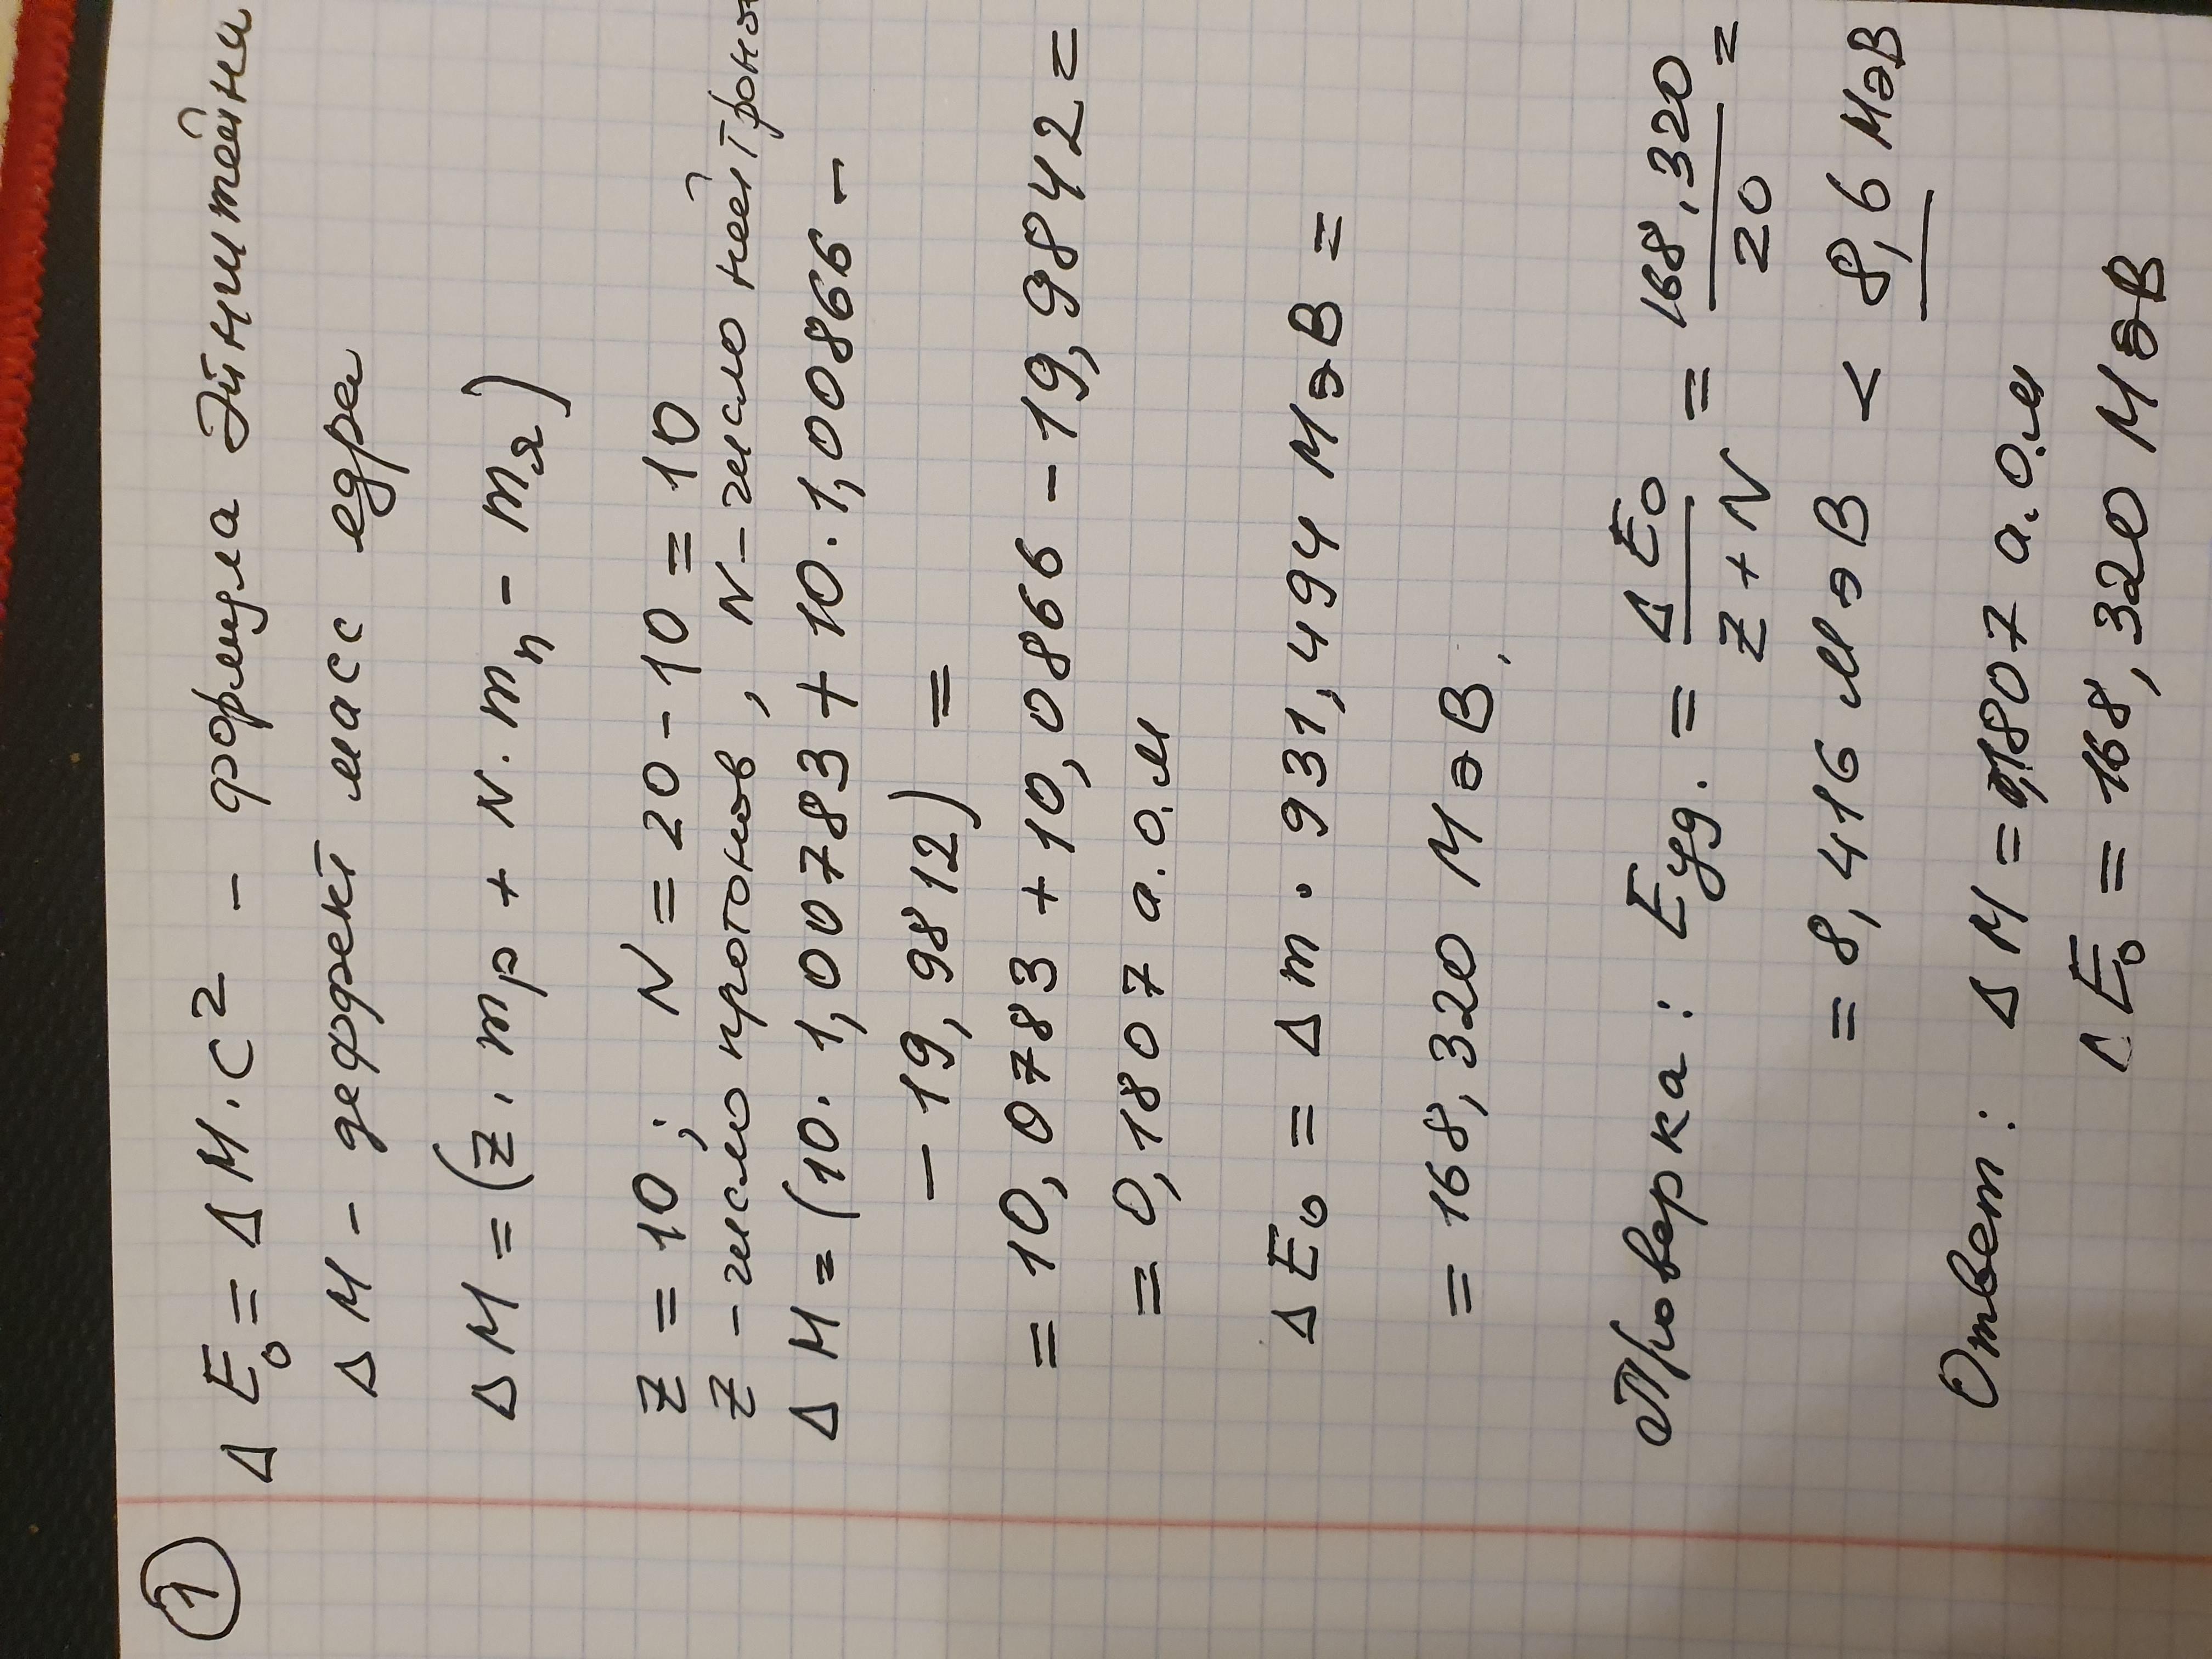 ①
ΔE₀ = ΔM·c² – формула Эйнштейна
ΔM – деффект масс едра
ΔM = (Z·mp + N·mn – mя)
Z = 10; N = 20 – 10 = 10
Z – число протонов, N – число нейтроно
ΔM = (10·1,00783 + 10·1,00866 –
– 19,9812) =
= 10,0783 + 10,0866 – 19,9842 =
= 0,1807 а.о.м
ΔE₀ = Δm · 931,494 МэВ =
= 168,320 МэВ.
Проверка: Eуд. = ΔE₀/(Z + N) = 168,320/20 =
= 8,416 МэВ < 8,6 МэВ
Ответ: ΔM = 0,1807 а.о.м
ΔE₀ = 168,320 МэВ